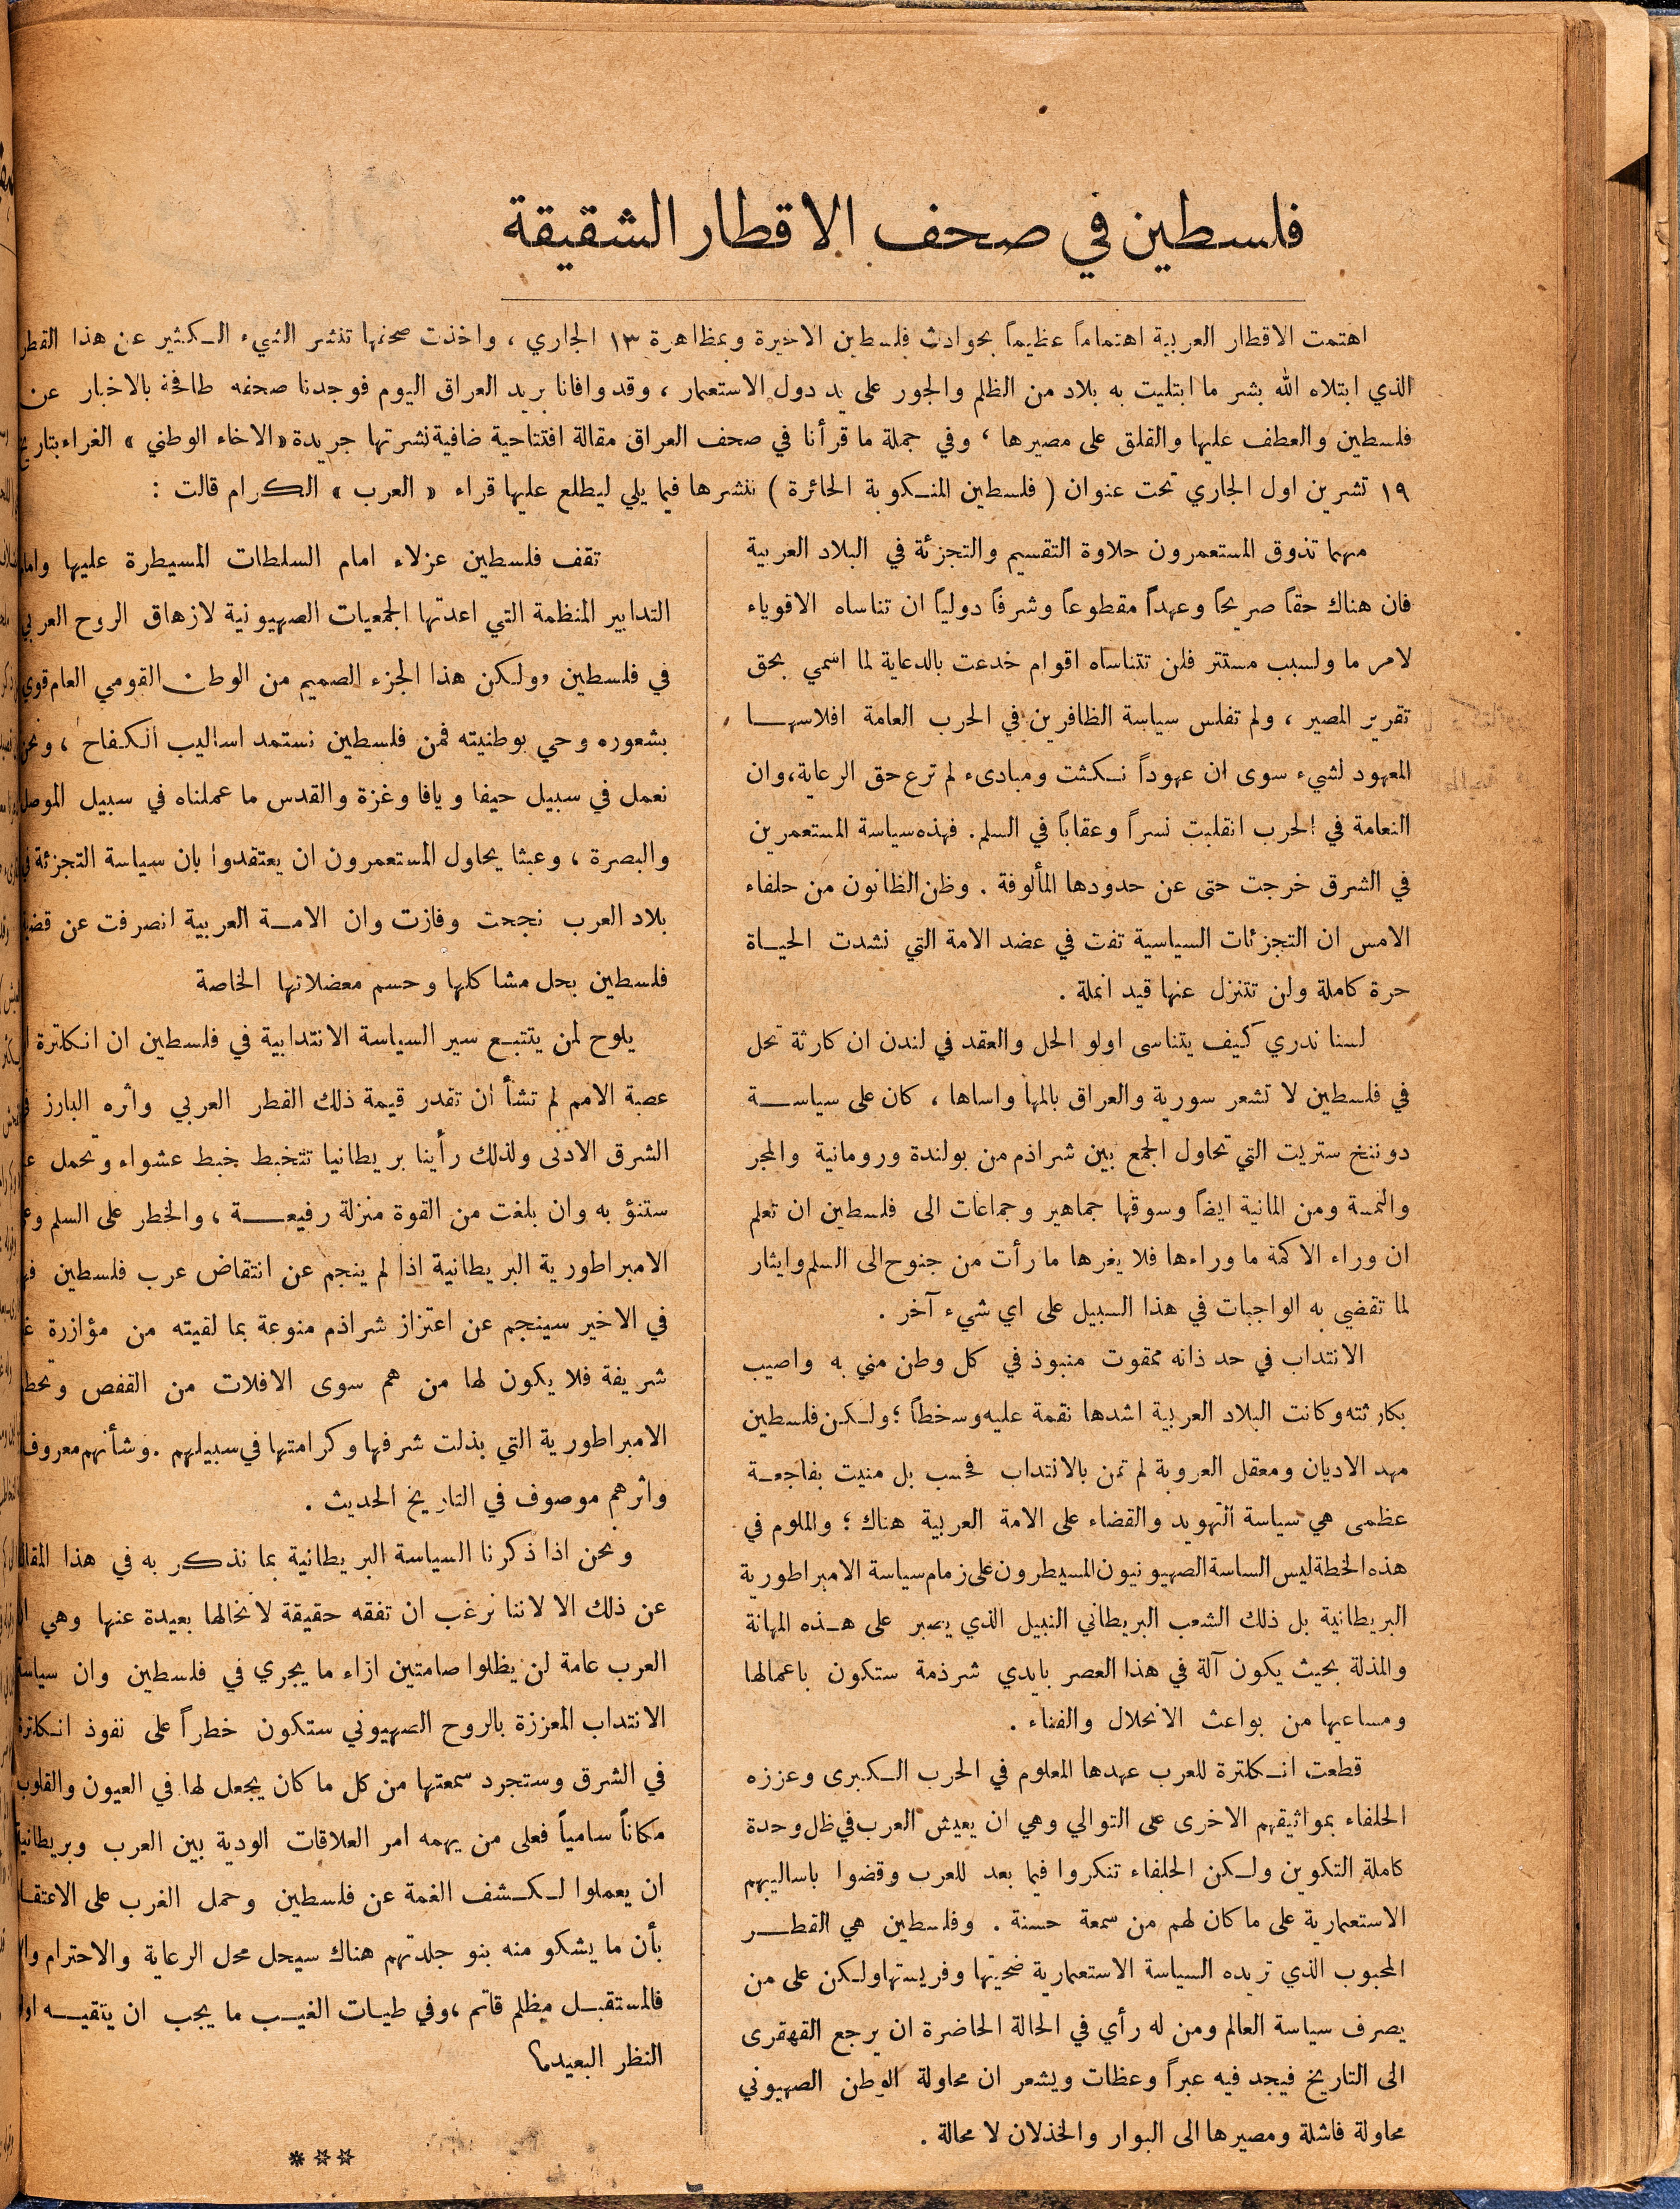 فلسطين في صحف الاقطار الشقيقة
اهتمت الاقطار العربية اهتماماً عظيماً بحوادث فلسطين الاخيرة وبمظاهرة ١٣ الجاري ، واخذت صحفها تنشر الشيء الكثير عن هذا القطر
الذي ابتلاه الله بشر ما ابتليت به بلاد من الظلم والجور على يد دول الاستعمار ، وقد وافانا بريد العراق اليوم فوجدنا صحفه طافحة بالاخبار عن
فلسطين والعطف عليها والقلق على مصيرها ، وفي جملة ما قرأنا في صحف العراق مقالة افتتاحية ضافية نشرتها جريدة « الاخاء الوطني » الغراء بتاريخ
١٩ تشرين اول الجاري تحت عنوان ( فلسطين المنكوبة الحائرة ) ننشرها فيما يلي ليطلع عليها قراء « العرب » الكرام قالت :
مهما تذوق المستعمرون حلاوة التقسيم والتجزئة في البلاد العربية
فان هناك حقاً صريحاً وعهداً مقطوعاً وشرفاً دولياً ان تناساه الاقوياء
لامر ما ولسبب مستتر فلن تتناساه اقوام خدعت بالدعاية لما اسمي بحق
تقرير المصير ، ولم تفلس سياسة الظافرين في الحرب العامة افلاسها
المعهود لشيء سوى ان عهوداً نكثت ومبادىء لم ترع حق الرعاية، وان
النعامة في الحرب انقلبت نسراً وعقاباً في السلم. فهذه سياسة المستعمرين
في الشرق خرجت حتى عن حدودها المألوفة . وظن الظانون من حلفاء
الامس ان التجزئات السياسية تفت في عضد الامة التي نشدت الحياة
حرة كاملة ولن تتنزل عنها قيد انملة .
لسنا ندري كيف يتناسى اولو الحل والعقد في لندن ان كارثة تحل
في فلسطين لا تشعر سورية والعراق بالمها واساها ، كان على سياسة
دوننغ ستريت التي تحاول الجمع بين شراذم من بولندة ورومانية والمجر
والنمسة ومن المانية ايضاً وسوقها جماهير وجماعات الى فلسطين ان تعلم
ان وراء الاكمة ما وراءها فلا يغرها ما رأت من جنوح الى السلم وايثار
لما تقضي به الواجبات في هذا السبيل على اي شيء آخر .
الانتداب في حد ذاته ممقوت منبوذ في كل وطن مني به واصيب
بكارثته وكانت البلاد العربية اشدها نقمة عليه وسخطاً ؛ ولكن فلسطين
مهد الاديان ومعقل العروبة لم تمن بالانتداب فحسب بل منيت بفاجعة
عظمى هي سياسة التهويد والقضاء على الامة العربية هناك ؛ والملوم في
هذه الخطة ليس الساسة الصهيونيون المسيطرون على زمام سياسة الامبراطورية
البريطانية بل ذلك الشعب البريطاني النبيل الذي يصبر على هذه المهانة
والمذلة بحيث يكون آلة في هذا العصر بايدي شرذمة ستكون باعمالها
ومساعيها من بواعث الانحلال والفناء .
قطعت انكلترة للعرب عهدها المعلوم في الحرب الكبرى وعززه
الحلفاء بمواثيقهم الاخرى على التوالي وهي ان يعيش العرب في ظل وحدة
كاملة التكوين ولكن الحلفاء تنكروا فيما بعد للعرب وقضوا باساليبهم
الاستعمارية على ما كان لهم من سمعة حسنة . وفلسطين هي القطر
المحبوب الذي تريده السياسة الاستعمارية ضحيتها وفريستها ولكن على من
يصرف سياسة العالم ومن له رأي في الحالة الحاضرة ان يرجع القهقرى
الى التاريخ فيجد فيه عبراً وعظات ويشعر ان محاولة الوطن الصهيوني
محاولة فاشلة ومصيرها الى البوار والخذلان لا محالة .
تقف فلسطين عزلاء امام السلطات المسيطرة عليها وامام
التدابير المنظمة التي اعدتها الجمعيات الصهيونية لازهاق الروح العربي
في فلسطين ، ولكن هذا الجزء الصميم من الوطن القومي العام قوي
بشعوره وحي بوطنيته فمن فلسطين نستمد اساليب الكفاح ، ونحن
نعمل في سبيل حيفا ويافا وغزة والقدس ما عملناه في سبيل الموصل
والبصرة ، وعبثا يحاول المستعمرون ان يعتقدوا بان سياسة التجزئة في
بلاد العرب نجحت وفازت وان الامة العربية انصرفت عن قضية
فلسطين بحل مشاكلها وحسم معضلاتها الخاصة
يلوح لمن يتتبع سير السياسة الانتدابية في فلسطين ان انكلترة
عصبة الامم لم تشأ ان تقدر قيمة ذلك القطر العربي واثره البارز في
الشرق الادنى ولذلك رأينا بريطانيا تتخبط خبط عشواء وتحمل
ستنؤ به وان بلغت من القوة منزلة رفيعة ، والخطر على السلم
الامبراطورية البريطانية اذا لم ينجم عن انتقاض عرب فلسطين
في الاخير سينجم عن اعتزاز شراذم منوعة بما لقيته من مؤازرة
شريفة فلا يكون لها من هم سوى الافلات من القفص
الامبراطورية التي بذلت شرفها وكرامتها في سبيلهم . وشأنهم معروف
واثرهم موصوف في التاريخ الحديث .
ونحن اذا ذكرنا السياسة البريطانية بما نذكر به في هذا المقال
عن ذلك الا لاننا نرغب ان تفقه حقيقة لا نخالها بعيدة عنها وهي
العرب عامة لن يظلوا صامتين ازاء ما يجري في فلسطين وان سياسة
الانتداب المعززة بالروح الصهيوني ستكون خطراً على نفوذ انكلترة
في الشرق وستجرد سمعتها من كل ما كان يجعل لها في العيون والقلوب
مكاناً سامياً فعلى من يهمه امر العلاقات الودية بين العرب وبريطانية
ان يعملوا لكشف الغمة عن فلسطين وحمل الغرب على الاعتقاد
بأن ما يشكو منه بنو جلدتهم هناك سيحل محل الرعاية والاحترام
فالمستقبل مظلم قاتم ، وفي طيات الغيب ما يجب ان يتقيه
النظر البعيد
***